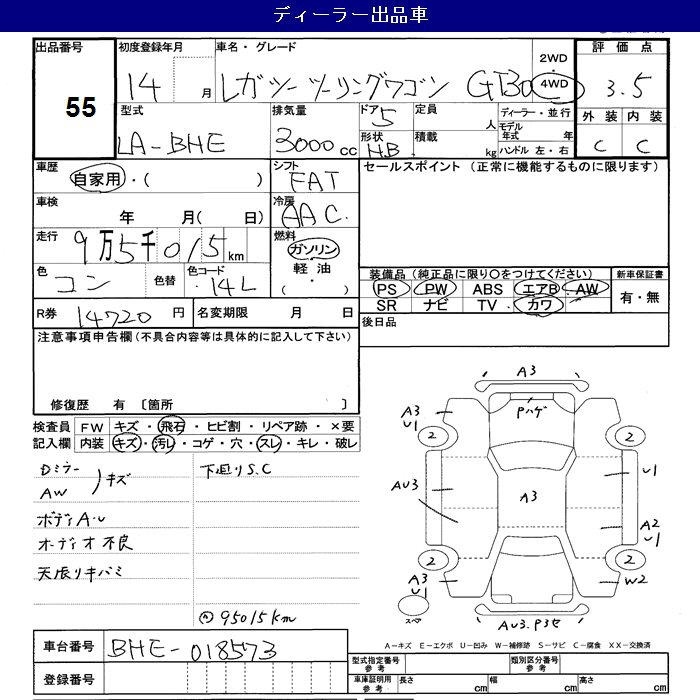 ディーラー出品車
出品番号 初度登録年月 車名・グレード 2WD 評価点
55 14 月 レガシーツーリングワゴン GT30 4WD 3.5
型式 排気量 ドア 5 定員 人 ディーラー・並行 外装 内装
LA-BHE 3000cc 形状 HB 積載 kg モデル年式 年 C C
ハンドル 左・右
車歴 シフト セールスポイント(正常に機能するものに限ります)
自家用・( ) FAT
車検 冷房
年 月( 日) AAC
走行 燃料
9万5千015km ガソリン
軽油
色 色替 色コード ・( )
コン 14L
装備品(純正品に限り○をつけてください) 新車保証書
PS PW ABS エアB AW 有・無
SR ナビ TV カワ
R券 14720 円 名変期限 月 日 後日品
注意事項申告欄(不具合内容等は具体的に記入して下さい)
修復歴 有 〔箇所 〕
検査員 FW キズ・飛石・ヒビ割・リペア跡・×要
記入欄 内装 キズ・汚レ・コゲ・穴・スレ・キレ・破レ
Dミラー 下廻りS.C
AW )キズ
ボディA・U
オーディオ不良
天張リキバミ
95015km
A3
A3 Pハゲ
U1
2 2
AU3 A3 U1
A2
U1
2 2
A3 W2
U1
スペア AU3.P3セ
A-キズ E-エクボ U-凹み W-補修跡 S-サビ C-腐食 XX-交換済
車台番号 BHE-018573
登録番号
型式指定番号 参考 類別区分番号 参考
車庫証明用 参考 長さ cm 幅 cm 高さ cm